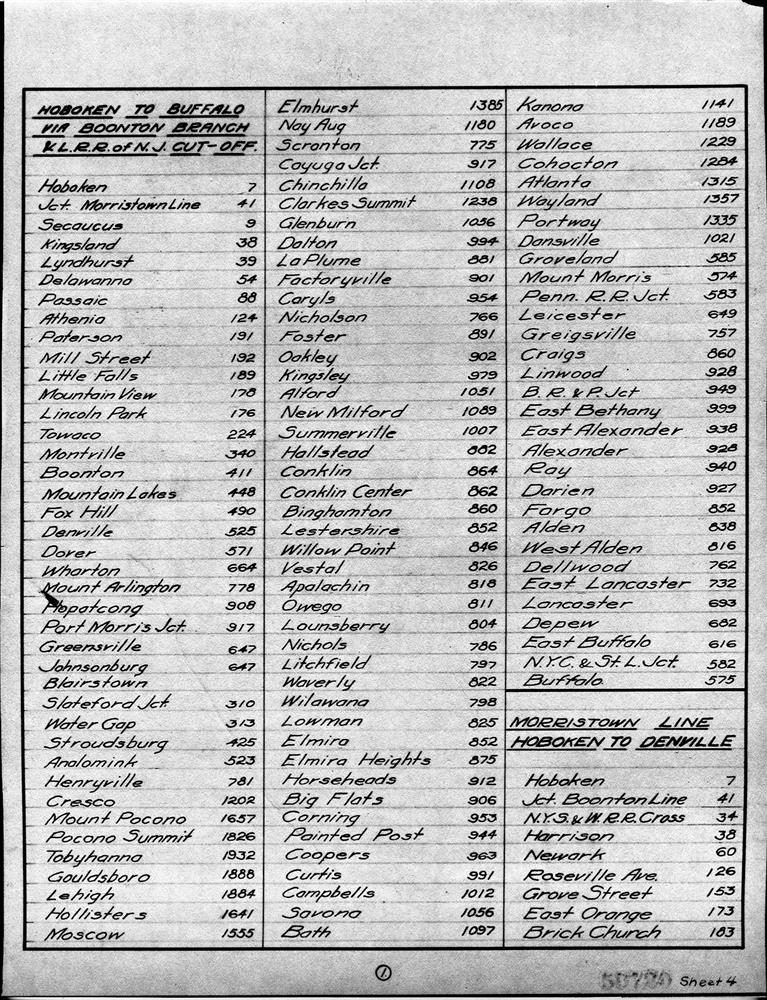 HOBOKEN TO BUFFALO
VIA BOONTON BRANCH
& L.R.R. OF N.J. CUT-OFF.
Hoboken 7
Jct. Morristown Line 41
Secaucus 9
Kingsland 38
Lyndhurst 39
Delawanna 54
Passaic 88
Athenia 124
Paterson 191
Mill Street 192
Little Falls 189
Mountain View 178
Lincoln Park 176
Towaco 224
Montville 340
Boonton 411
Mountain Lakes 448
Fox Hill 490
Denville 525
Dover 571
Wharton 664
Mount Arlington 778
Hopatcong 908
Port Morris Jct. 917
Greensville 647
Johnsonburg 647
Blairstown
Slateford Jct. 310
Water Gap 313
Stroudsburg 425
Analomink 523
Henryville 781
Cresco 1202
Mount Pocono 1657
Pocono Summit 1826
Tobyhanna 1932
Gouldsboro 1888
Lehigh 1884
Hollisters 1641
Moscow 1555
Elmhurst 1385
Nay Aug 1180
Scranton 775
Cayuga Jct. 917
Chinchilla 1108
Clarkes Summit 1238
Glenburn 1056
Dalton 994
La Plume 881
Factoryville 901
Caryls 954
Nicholson 766
Foster 891
Oakley 902
Kingsley 979
Alford 1051
New Milford 1089
Summerville 1007
Hallstead 882
Conklin 864
Conklin Center 862
Binghamton 860
Lestershire 852
Willow Point 846
Vestal 826
Apalachin 818
Owego 811
Lounsberry 804
Nichols 786
Litchfield 797
Waverly 822
Wilawana 798
Lowman 825
Elmira 852
Elmira Heights 875
Horseheads 912
Big Flats 906
Corning 953
Painted Post 944
Coopers 963
Curtis 991
Campbells 1012
Savona 1056
Bath 1097
Kanona 1141
Avoca 1189
Wallace 1229
Cohocton 1284
Atlanta 1315
Wayland 1357
Portway 1335
Dansville 1021
Groveland 585
Mount Morris 574
Penn. R.R. Jct. 583
Leicester 649
Greigsville 757
Craigs 860
Linwood 928
B.R. & P. Jct 949
East Bethany 999
East Alexander 938
Alexander 928
Ray 940
Darien 927
Fargo 852
Alden 838
West Alden 816
Dellwood 762
East Lancaster 732
Lancaster 693
Depew 682
East Buffalo 616
N.Y.C. & St. L. Jct. 582
Buffalo 575
MORRISTOWN LINE
HOBOKEN TO DENVILLE
Hoboken 7
Jct. Boonton Line 41
N.Y.S. & W.R.R. Cross 34
Harrison 38
Newark 60
Roseville Ave. 126
Grove Street 153
East Orange 173
Brick Church 183
1.
Sheet 4